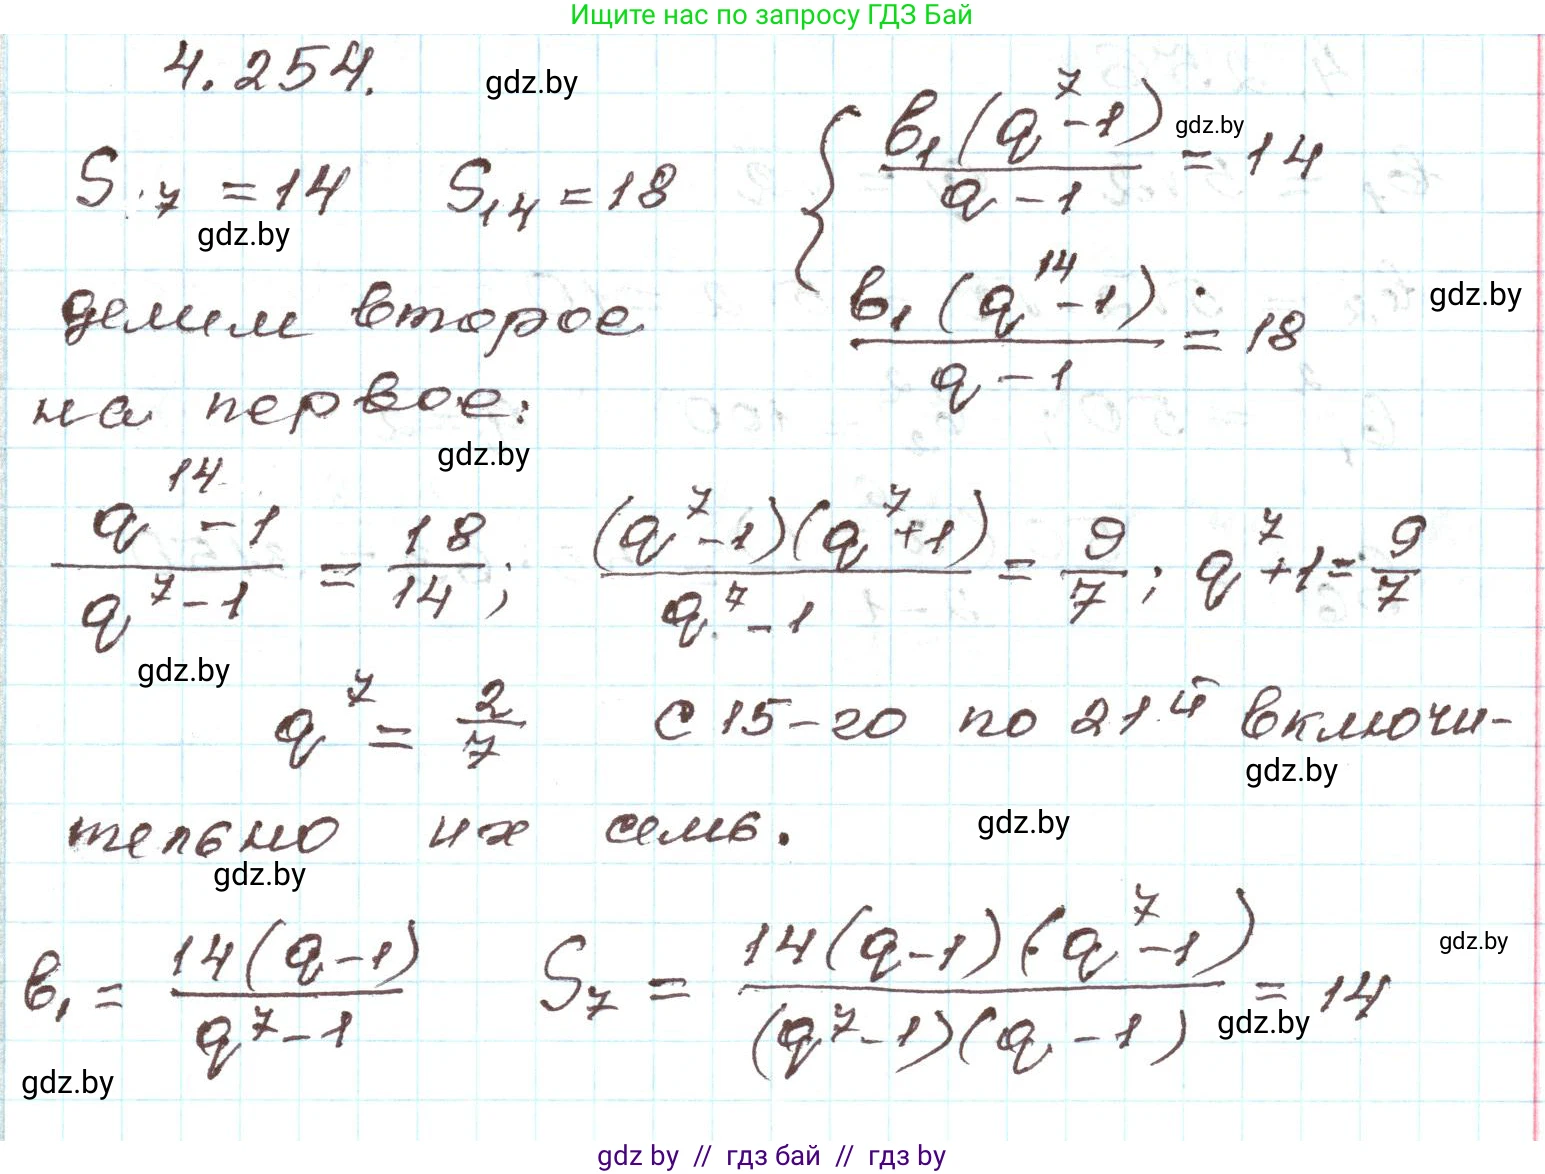 Ищите нас по запросу ГДЗ Бай
4.254.
gdz.by
S₇ = 14 S₁₄ = 18
gdz.by
{ b₁(q⁷-1) / (q-1) = 14
gdz.by
b₁(q¹⁴-1) / (q-1) = 18
gdz.by
делим второе
на первое:
gdz.by
(q¹⁴-1) / (q⁷-1) = 18/14; (q⁷-1)(q⁷+1) / (q⁷-1) = 9/7; q⁷+1 = 9/7
gdz.by
q⁷ = 2/7 С 15-го по 21й включи-
gdz.by
тельно их семь.
gdz.by
gdz.by
b₁ = 14(q-1) / (q⁷-1) S₇ = 14(q-1)(q⁷-1) / (q⁷-1)(q-1) = 14
gdz.by
gdz.by
gdz.by
gdz by // гдз бай // гдз by